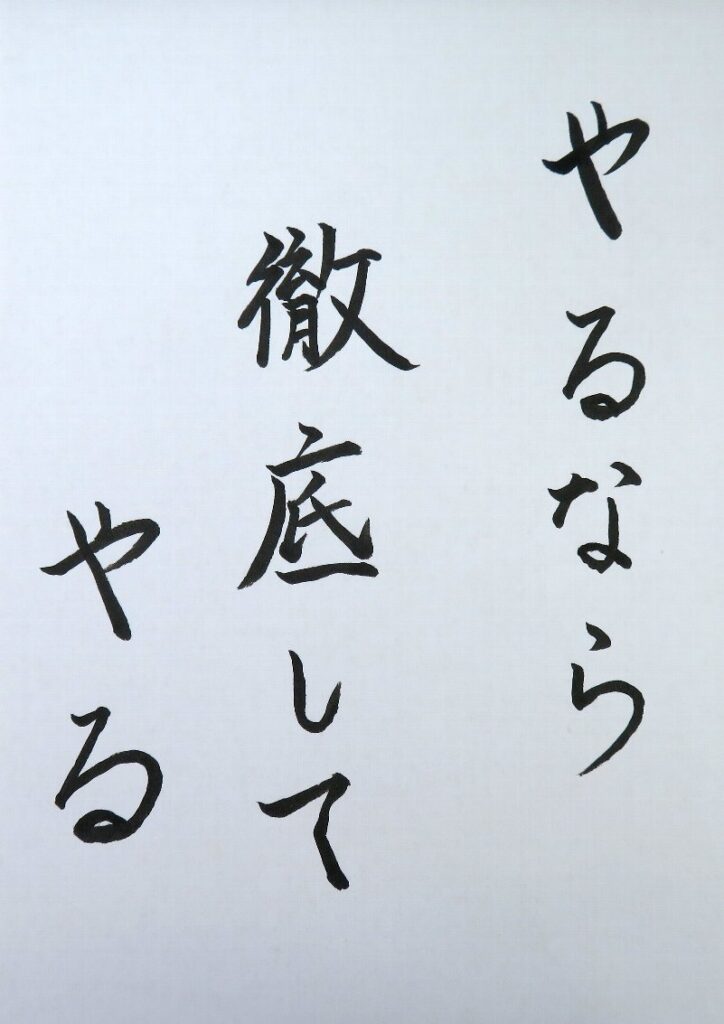 やるなら
徹底して
やる